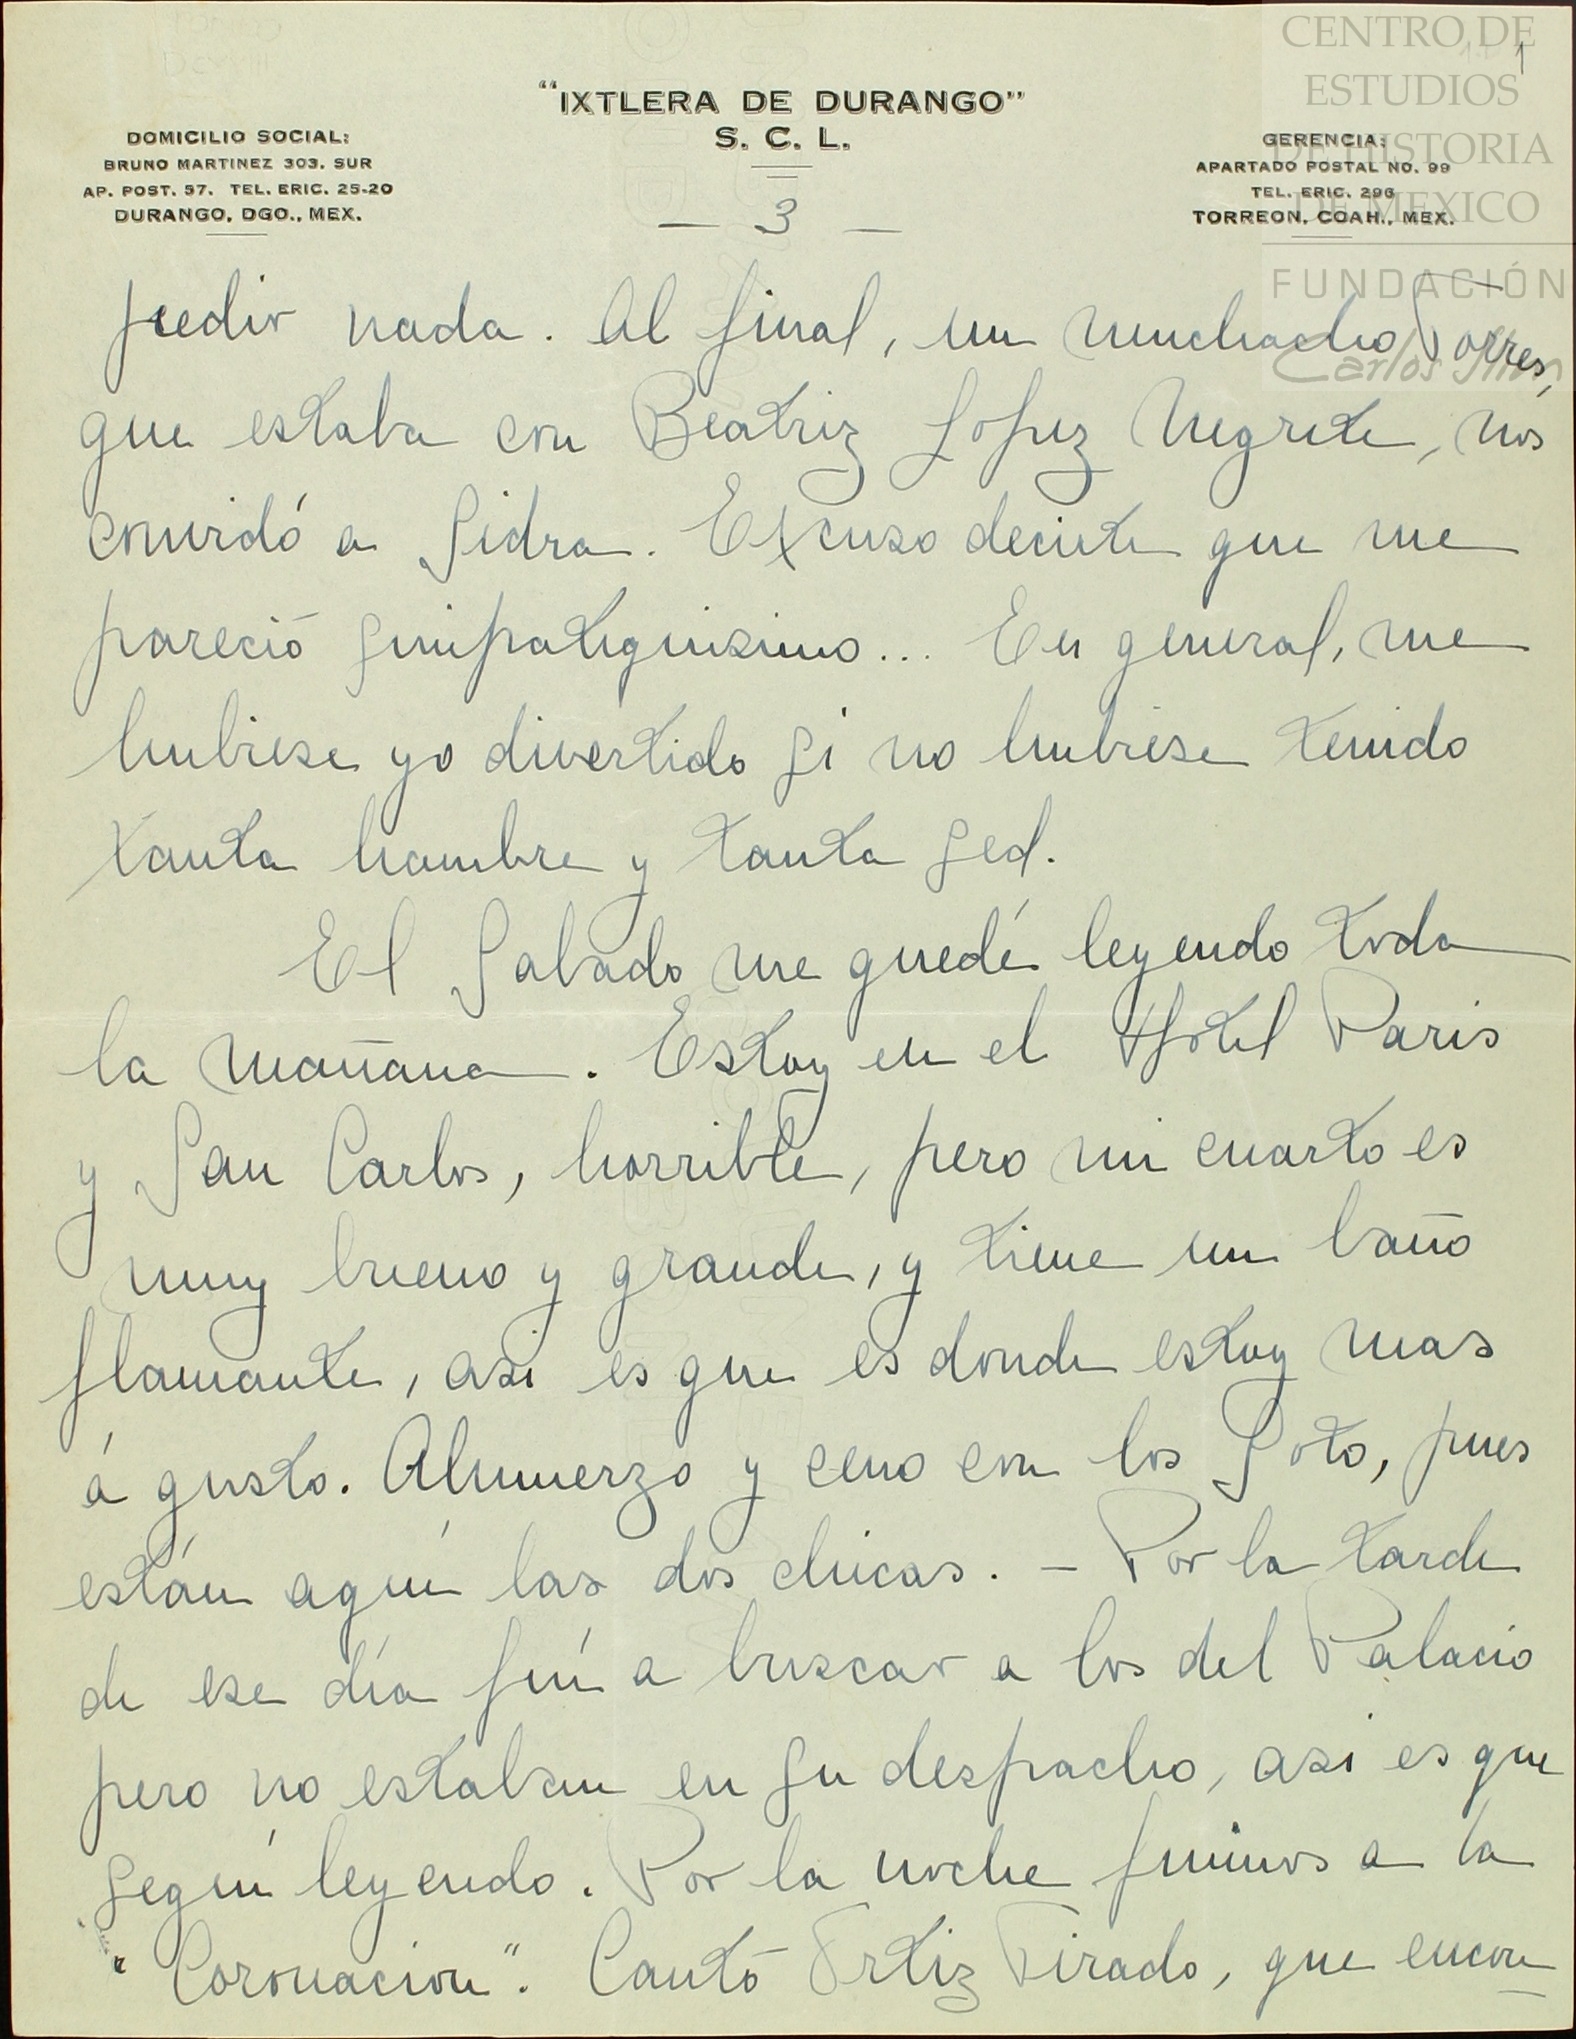 CENTRO DE
ESTUDIOS
DE HISTORIA
DE MEXICO
FUNDACIÓN
Carlos Slim
1
"IXTLERA DE DURANGO"
S. C. L.
DOMICILIO SOCIAL:
BRUNO MARTINEZ 303. SUR
AP. POST. 57. TEL. ERIC. 25-20
DURANGO, DGO., MEX.
GERENCIA:
APARTADO POSTAL NO. 99
TEL. ERIC. 296
TORREON, COAH., MEX.
— 3 —
pedir nada. Al final, un muchacho Torres,
que estaba con Beatriz Lopez Negrete, nos
convidó a Sidra. Excuso decirte que me
pareció simpatiquisimo... En general, me
hubiese yo divertido si no hubiese tenido
tanta hambre y tanta sed.
El Sabado me quedé leyendo toda
la mañana. Estoy en el Hotel Paris
y San Carlos, horrible, pero mi cuarto es
muy bueno y grande, y tiene un baño
flamante, asi es que es donde estoy mas
á gusto. Almuerzo y ceno con los Soto, pues
están aquí las dos chicas. – Por la tarde
de ese día fuí a buscar a los del Palacio
pero no estaban en su despacho, asi es que
seguí leyendo. Por la noche fuimos a la
"Coronacion". Cantó Ortiz Tirado, que encon-